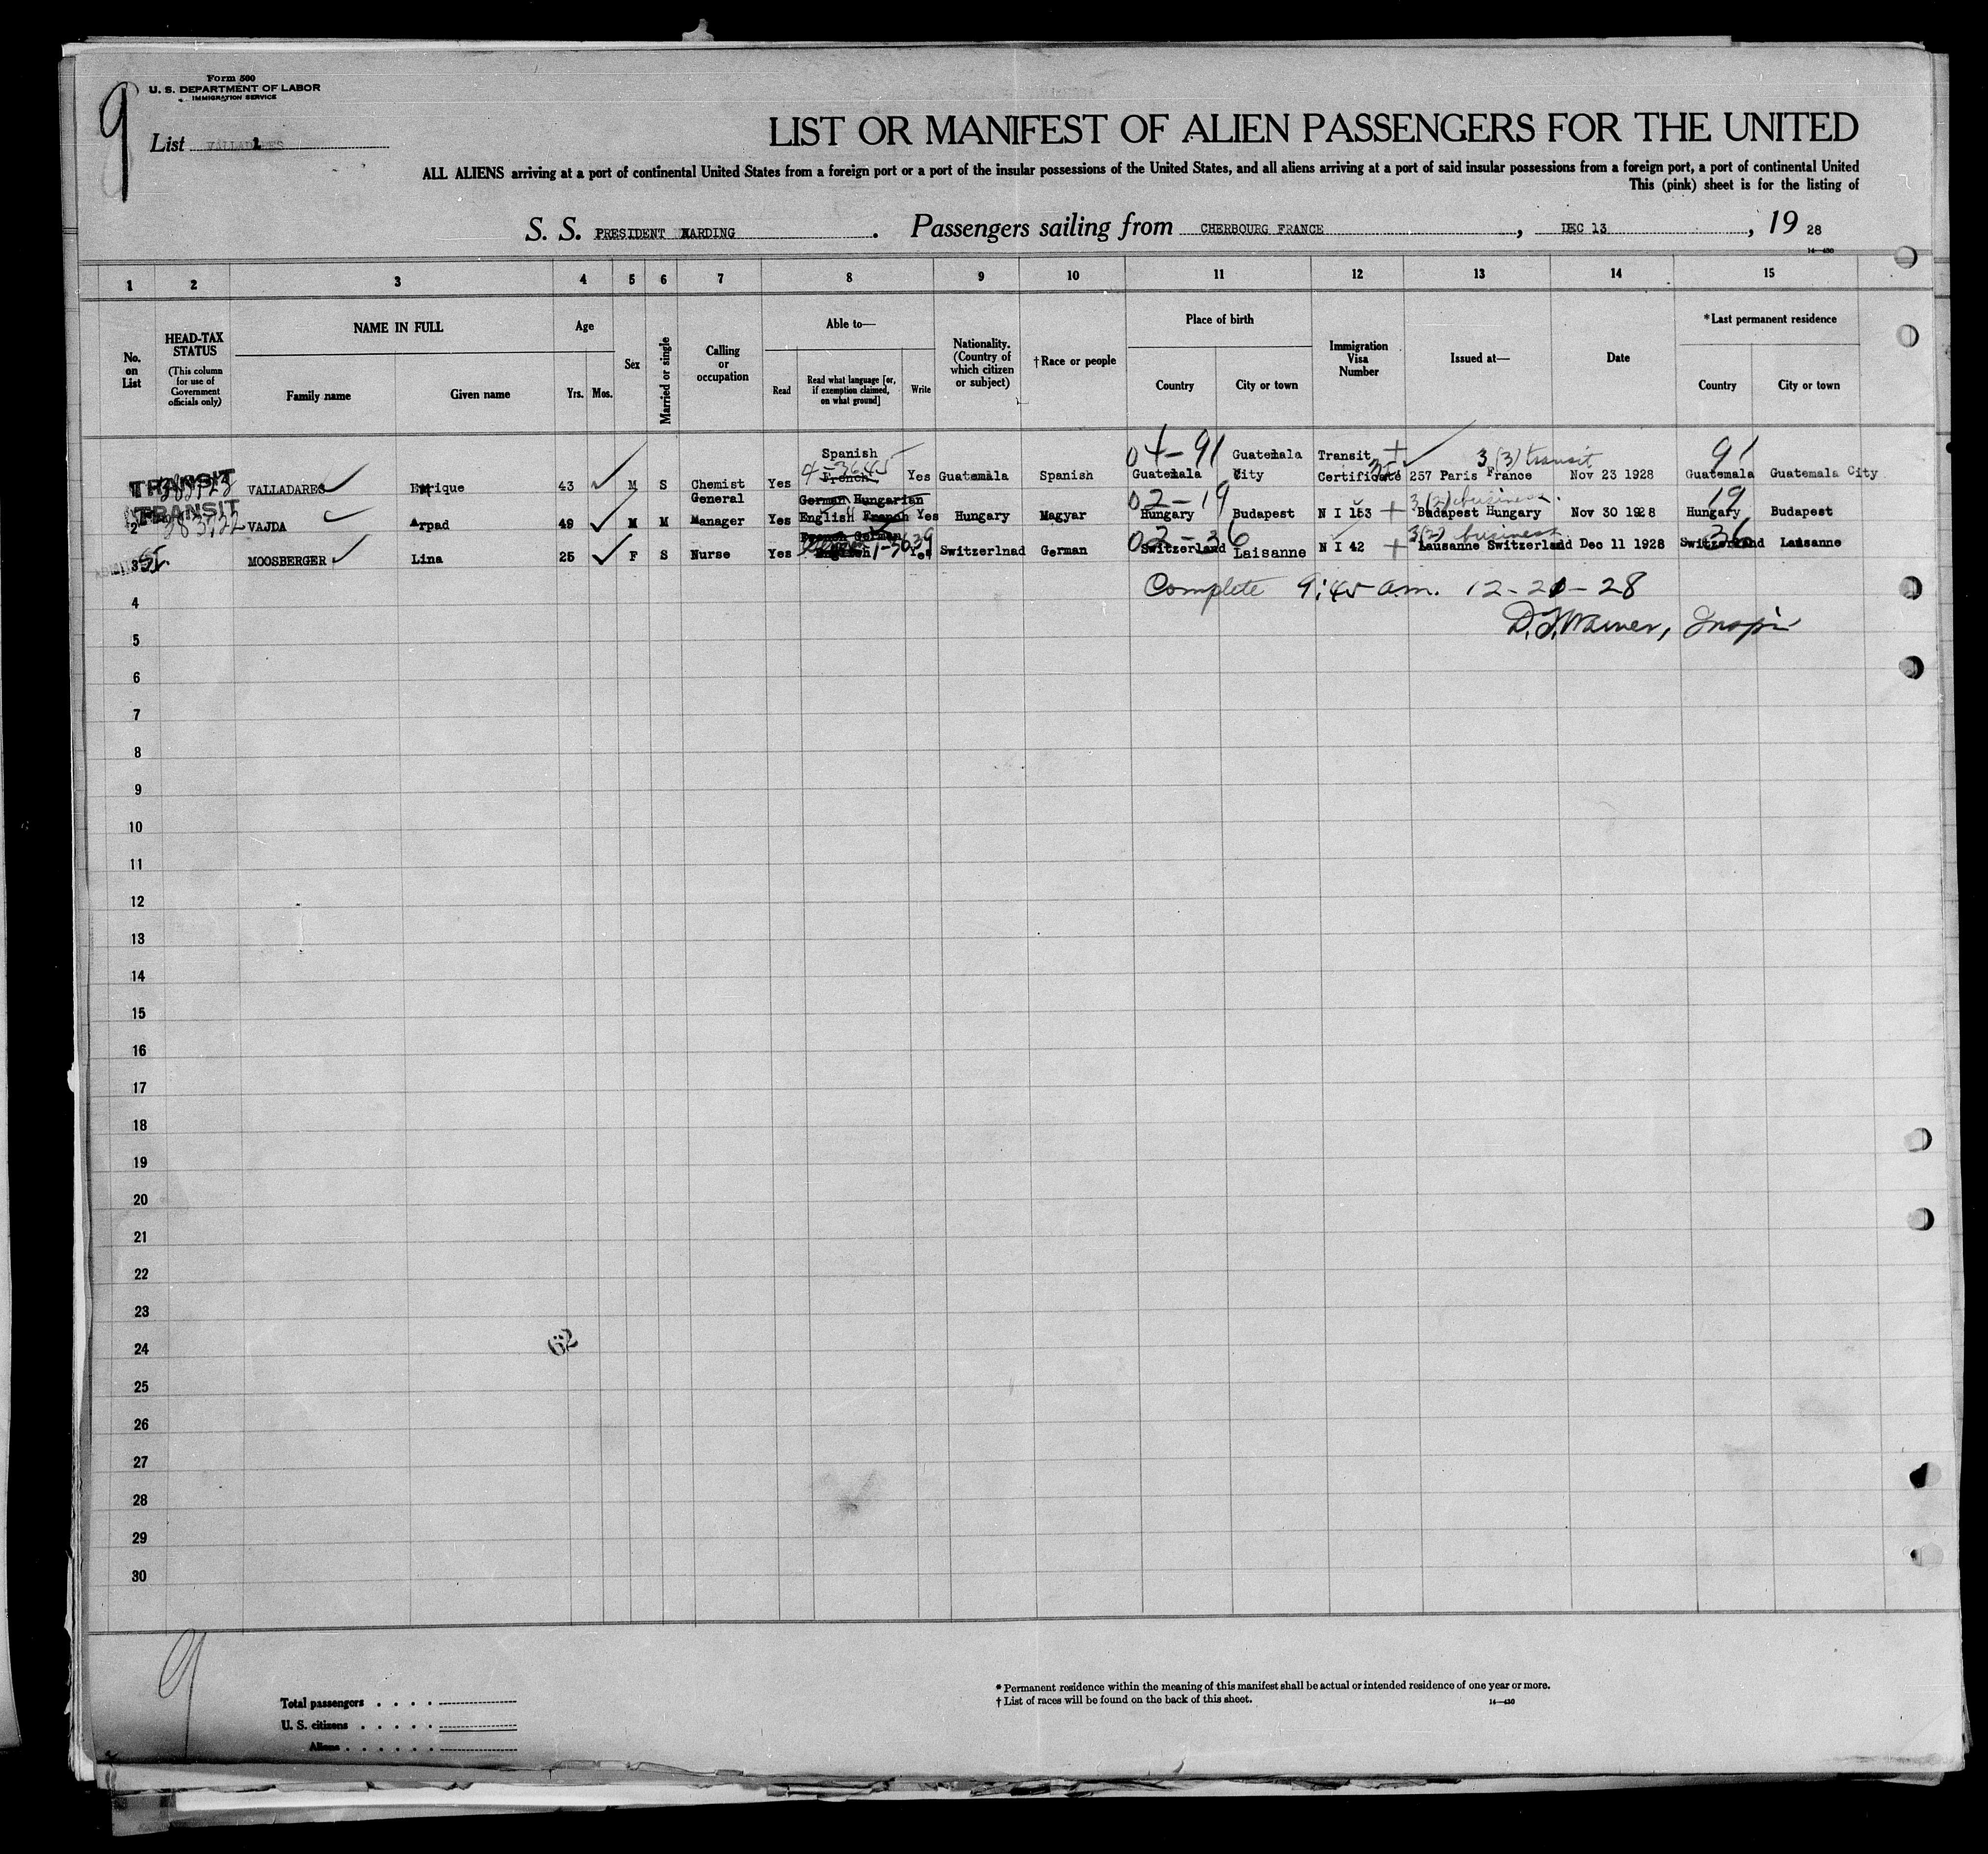 9
Form 500
U. S. DEPARTMENT OF LABOR
IMMIGRATION SERVICE
List 1
LIST OR MANIFEST OF ALIEN PASSENGERS FOR THE UNITED
ALL ALIENS arriving at a port of continental United States from a foreign port or a port of the insular possessions of the United States, and all aliens arriving at a port of said insular possessions from a foreign port, a port of continental United
This (pink) sheet is for the listing of
S. S. PRESIDENT HARDING. Passengers sailing from CHERBOURG FRANCE, DEC 13, 19 28
14—430
1 2 3 4 5 6 7 8 9 10 11 12 13 14 15
No. on List
HEAD-TAX STATUS
(This column for use of Government officials only)
NAME IN FULL
Family name Given name
Age
Yrs. Mos.
Sex
Married or single
Calling or occupation
Able to—
Read Read what language [or, if exemption claimed, on what ground] Write
Nationality. (Country of which citizen or subject)
†Race or people
Place of birth
Country City or town
Immigration Visa Number
Issued at—
Date
*Last permanent residence
Country City or town
Spanish 04-91 Guatemala Transit 3(3) transit 91
1 TRANSIT VALLADARES Enrique 43 M S Chemist Yes French Yes Guatemala Spanish Guatemala City Certificate 257 Paris France Nov 23 1928 Guatemala Guatemala City
General German Hungarian 02-19 3(2) business. 19
2 TRANSIT VAJDA Arpad 49 M M Manager Yes English French Yes Hungary Magyar Hungary Budapest N I 153 Budapest Hungary Nov 30 1928 Hungary Budapest
French German 02-36 3(2) business 36
3 MOOSBERGER Lina 25 F S Nurse Yes English 1-3639 Yes Switzerlnad German Switzerland Laisanne N I 42 Lausanne Switzerland Dec 11 1928 Switzerland Lausanne
4 Complete 9:45 a.m. 12-20-28
5
6
7
8
9
10
11
12
13
14
15
16
17
18
19
20
21
22
23
24
62
25
26
27
28
29
30
9
Total passengers . . . .
U. S. citizens . . . . .
Aliens . . . . . .
* Permanent residence within the meaning of this manifest shall be actual or intended residence of one year or more.
† List of races will be found on the back of this sheet. 14—430